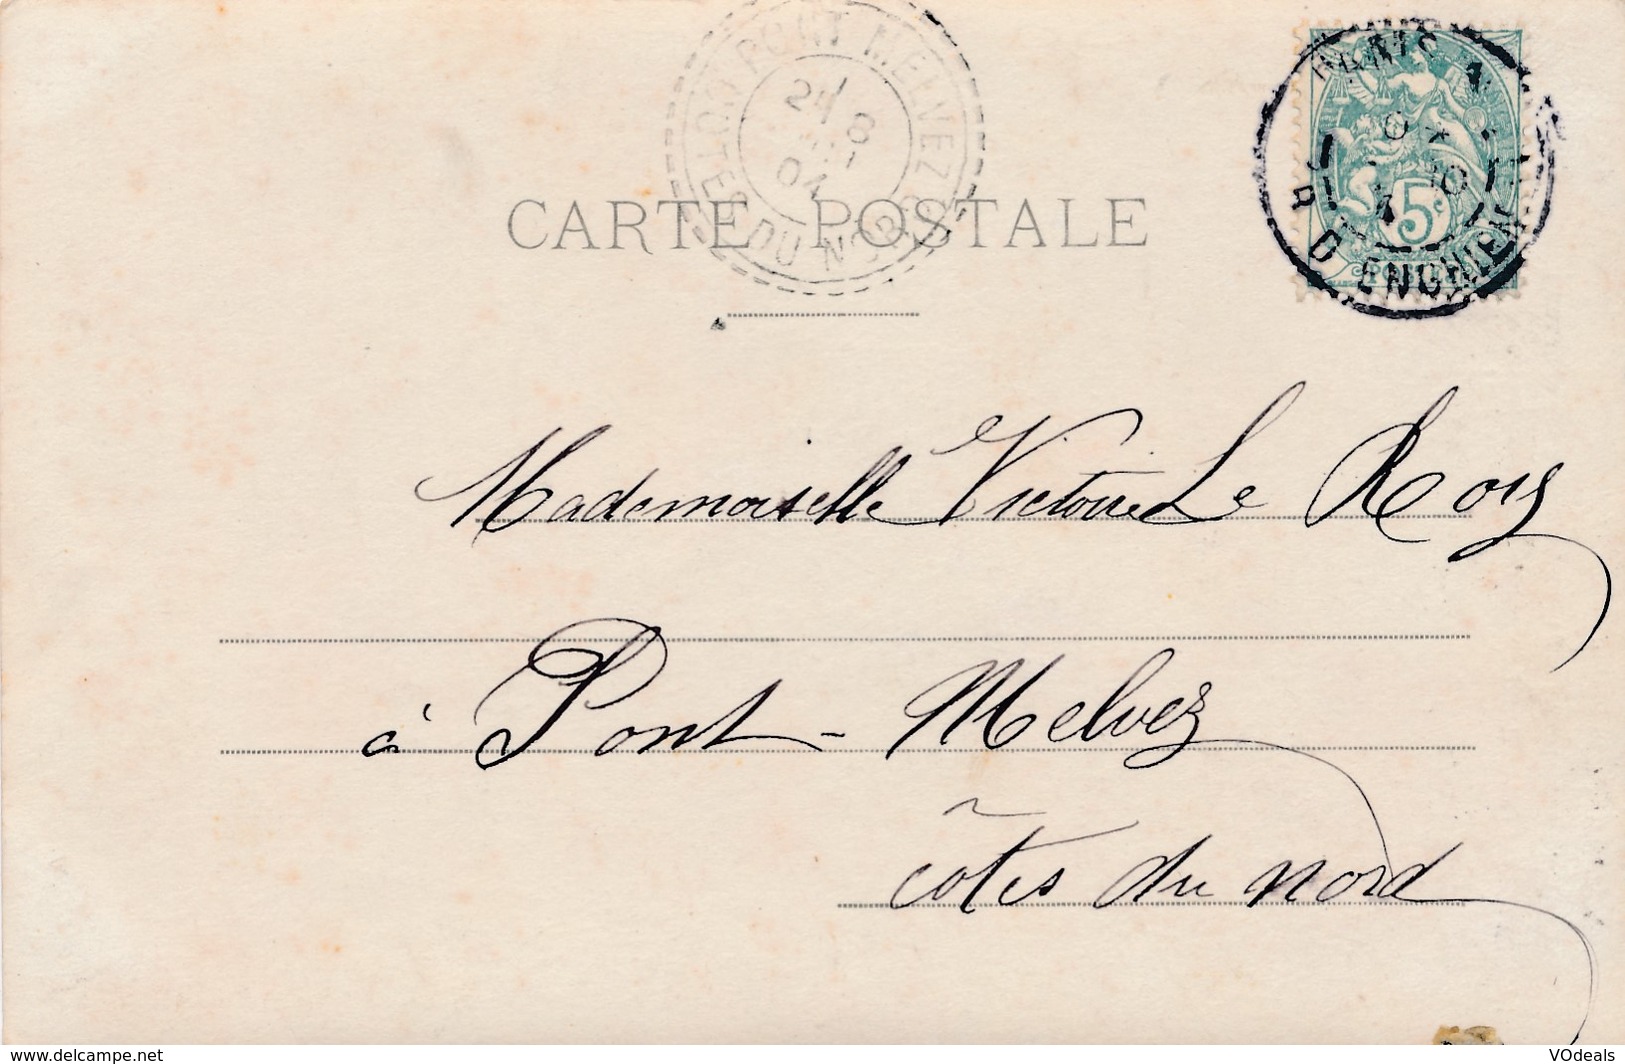 PONT MELVEZ
COTES DU NORD
24 8
04
PARIS
R. D'ENGHIEN
5c
CARTE POSTALE
Mademoiselle Victoire Le Roy
à Pont-Melvez
côtes du nord
www.delcampe.net
VOdeals